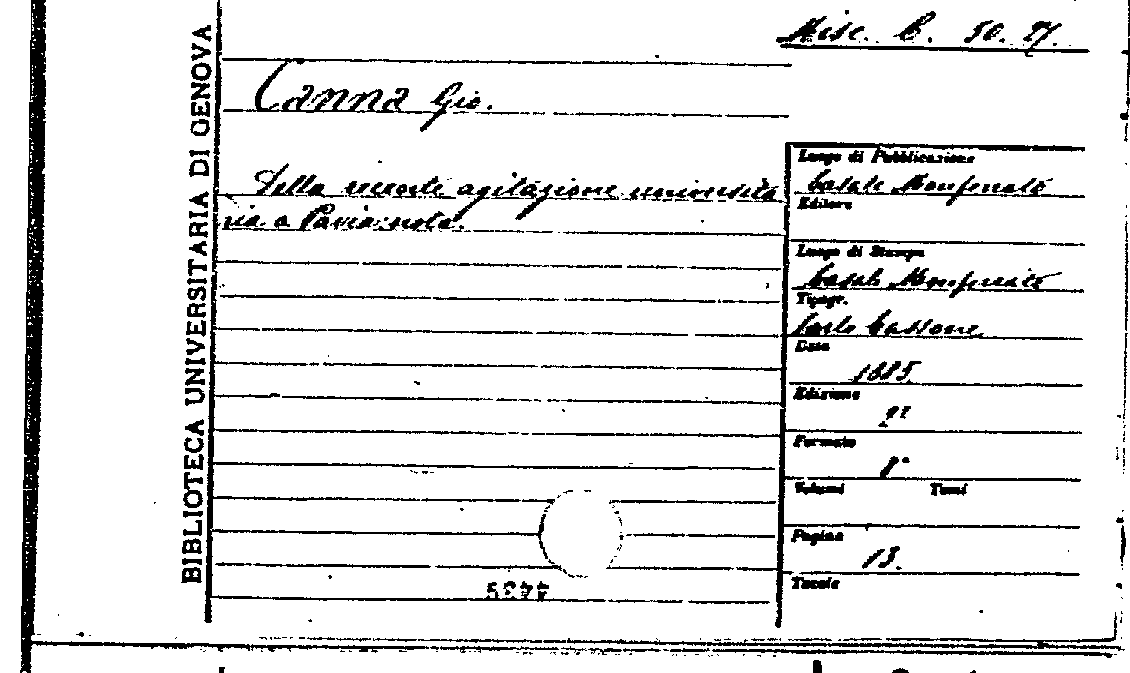 Misc. B. 50. 21.
BIBLIOTECA UNIVERSITARIA DI GENOVA
Canna Gio.
Della recente agitazione universita
ria a Pavia: nota.
Luogo di Pubblicazione
Casale Monferrato
Editore
Luogo di Stampa
Casale Monferrato
Tipogr.
Carlo Cassone
Data
1885.
Edizione
2ª
Formato
8°
Volumi Tomi
Pagine
13.
Tavole